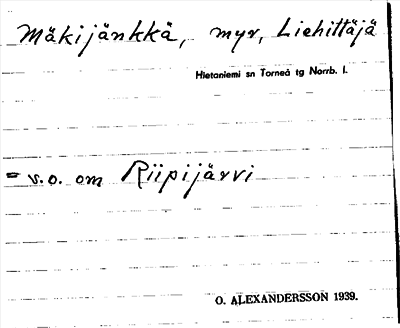 Mäkijänkkä, myr, Liehittäjä
Hietaniemi sn Torneå tg Norrb. l.
= v.s.o. om Riipijärvi
O. ALEXANDERSSON 1939.